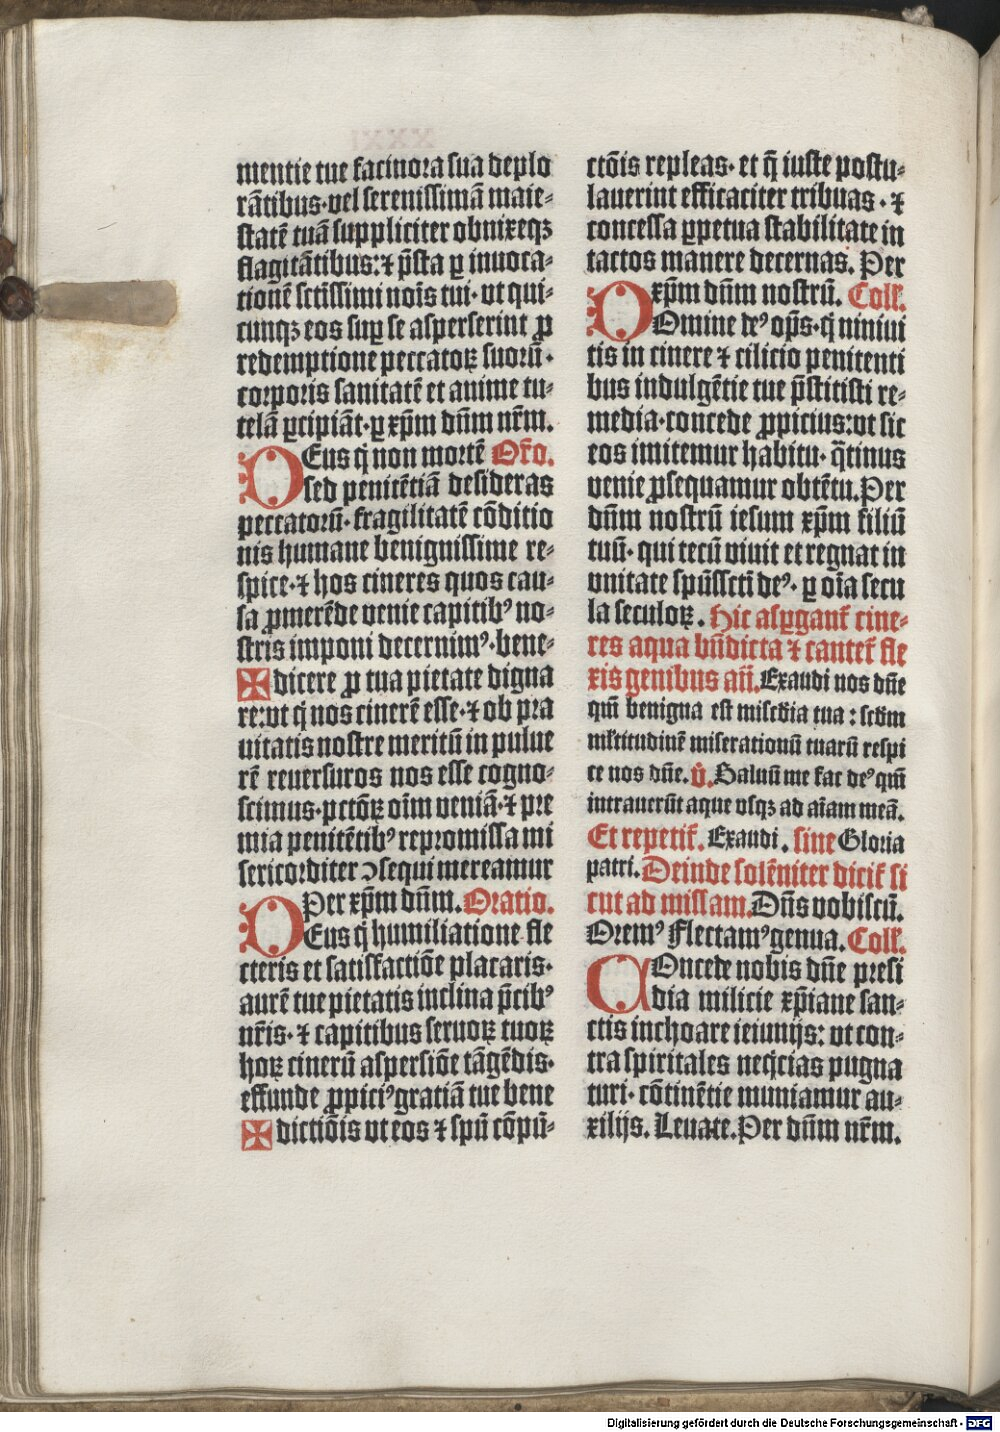 mentie tue facinora sua deplo
rãtibus·vel serenissimã maie-
statẽ tuã suppliciter obnixeqꝫ
flagitãtibus:⁊ p̃sta ꝑ inuoca-
tionẽ sctissimi nois tui·vt qui-
cunqꝫ eos sup se asperserint ꝓ
redemptione peccatoꝝ suorũ·
corporis sanitatẽ et anime tu-
telã ꝑcipiãt·ꝑ xp̃m dñm nr̃m.
DEus q̃ non mortẽ Or̃o.
sed penitẽtiã desideras
peccatorũ·fragilitatẽ cõditio
nis humane benignissime re-
spice·⁊ hos cineres quos cau-
sa ꝓmerẽde venie capitibꝰ no-
stris imponi decernimꝰ·bene-
✠ dicere ꝓ tua pietate digna
re:vt q̃ nos cinerẽ esse·⁊ ob pra
uitatis nostre meritũ in pulue
rẽ reuersuros nos esse cogno-
scimus·pctõꝝ oĩm veniã·⁊ pre
mia penitẽtibꝰ repromissa mi
sericorditer ↄsequi mereamur
Per xp̃m dñm. Oratio.
DEus q̃ humiliatione fle
cteris et satisfactiõe placaris·
aurẽ tue pietatis inclina p̃cibꝰ
nr̃is·⁊ capitibus seruoꝝ tuoꝝ
hoꝝ cinerũ aspersiõe tãgẽdis·
effunde ꝓpiciꝰ gratiã tue bene
✠ dictiõis vt eos ⁊ spũ cõpũ-
ctõis repleas·et q̃ iuste postu-
lauerint efficaciter tribuas·⁊
concessa ꝑpetua stabilitate in
tactos manere decernas. Per
xp̃m dñm nostrũ. Coll'.
DOmine deꝰ op̃s·q̃ niniui
tis in cinere ⁊ cilicio penitenti
bus indulgẽtie tue p̃stitisti re-
media·concede ꝓpicius:vt sic
eos imitemur habitu·q̃tinus
venie ꝓsequamur obtẽtu.Per
dñm nostrũ iesum xp̃m filiũ
tuũ·qui tecũ viuit et regnat in
vnitate spũssctĩ deꝰ·ꝑ oĩa secu
la seculoꝝ. Hic aspgant̃ cine-
res aqua bñdicta ⁊ cantet̃ fle
xis genibus añ. Exaudi nos dñe
qm̃ benigna est misc̃dia tua:scd̃m
ml̃titudinẽ miserationũ tuarũ respi
ce nos dñe. ṽ. Saluũ me fac deꝰ qm̃
intrauerũt aque vsqꝫ ad aĩam meã.
Et repetit̃. Exaudi. sine Gloria
patri. Deinde solẽniter dicit̃ si
cut ad missam. Dñs vobiscũ.
Oremꝰ Flectamꝰ genua. Coll'.
COncede nobis dñe presi
dia milicie xp̃iane san-
ctis inchoare ieiunijs: vt con-
tra spiritales neq̃cias pugna
turi·cõtinẽtie muniamur au-
xilijs. Leuate. Per dñm nr̃m.
Digitalisierung gefördert durch die Deutsche Forschungsgemeinschaft - DFG